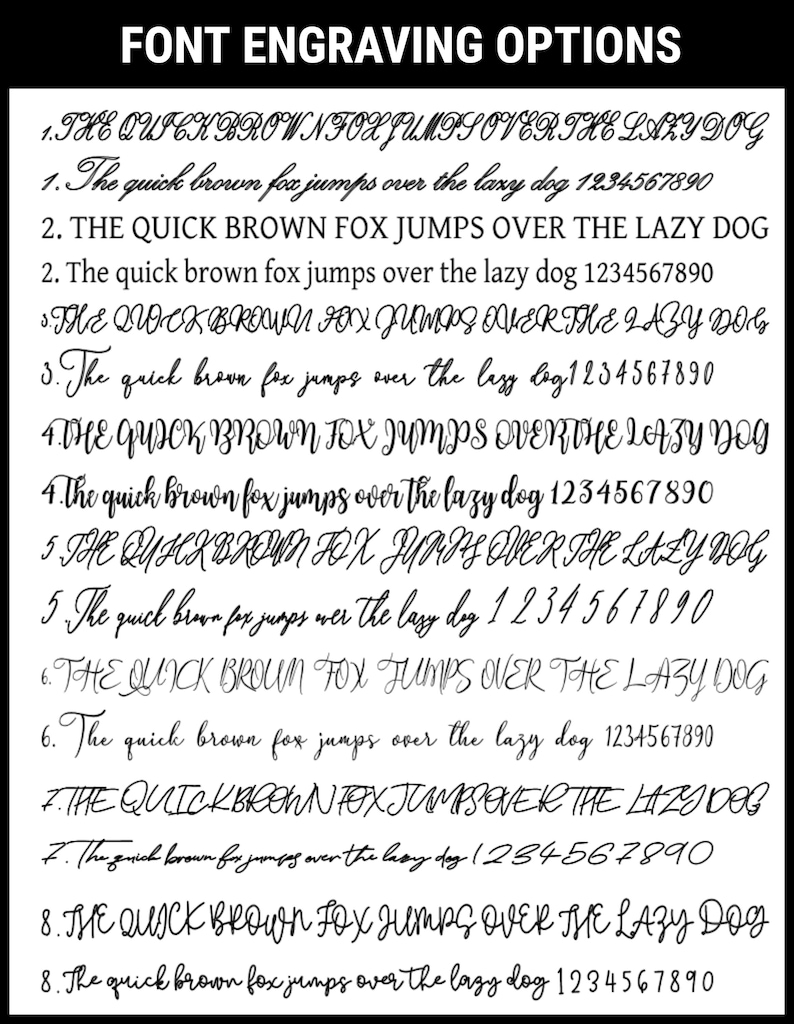 FONT ENGRAVING OPTIONS
1. THE QUICK BROWN FOX JUMPS OVER THE LAZY DOG
1. The quick brown fox jumps over the lazy dog 1234567890
2. THE QUICK BROWN FOX JUMPS OVER THE LAZY DOG
2. The quick brown fox jumps over the lazy dog 1234567890
3. THE QUICK BROWN FOX JUMPS OVER THE LAZY DOG
3. The quick brown fox jumps over the lazy dog 1234567890
4. THE QUICK BROWN FOX JUMPS OVER THE LAZY DOG
4. The quick brown fox jumps over the lazy dog 1234567890
5. THE QUICK BROWN FOX JUMPS OVER THE LAZY DOG
5. The quick brown fox jumps over the lazy dog 1234567890
6. THE QUICK BROWN FOX JUMPS OVER THE LAZY DOG
6. The quick brown fox jumps over the lazy dog 1234567890
7. THE QUICK BROWN FOX JUMPS OVER THE LAZY DOG
7. The quick brown fox jumps over the lazy dog 1234567890
8. THE QUICK BROWN FOX JUMPS OVER THE LAZY DOG
8. The quick brown fox jumps over the lazy dog 1234567890